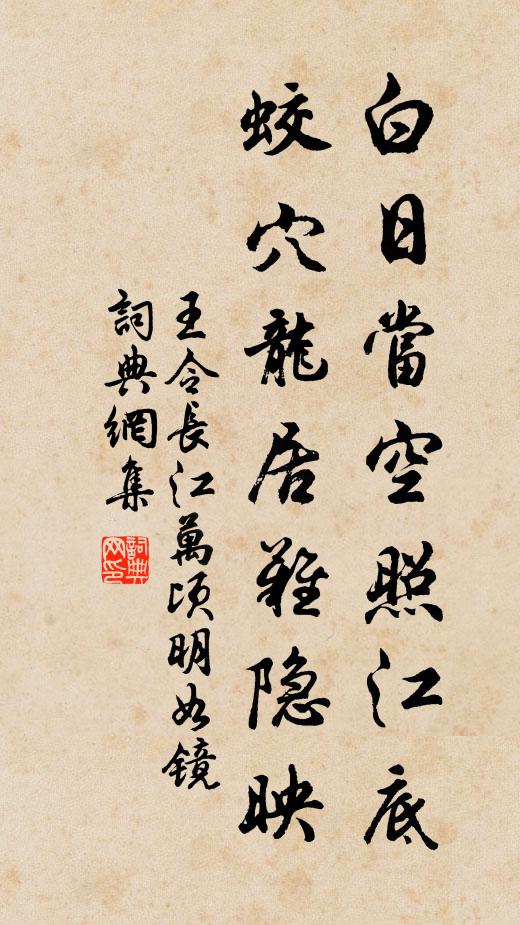 白日當空照江底
蛟穴龍居難隐映
王令長江萬頃明如鏡
詞典網集
詞典网印